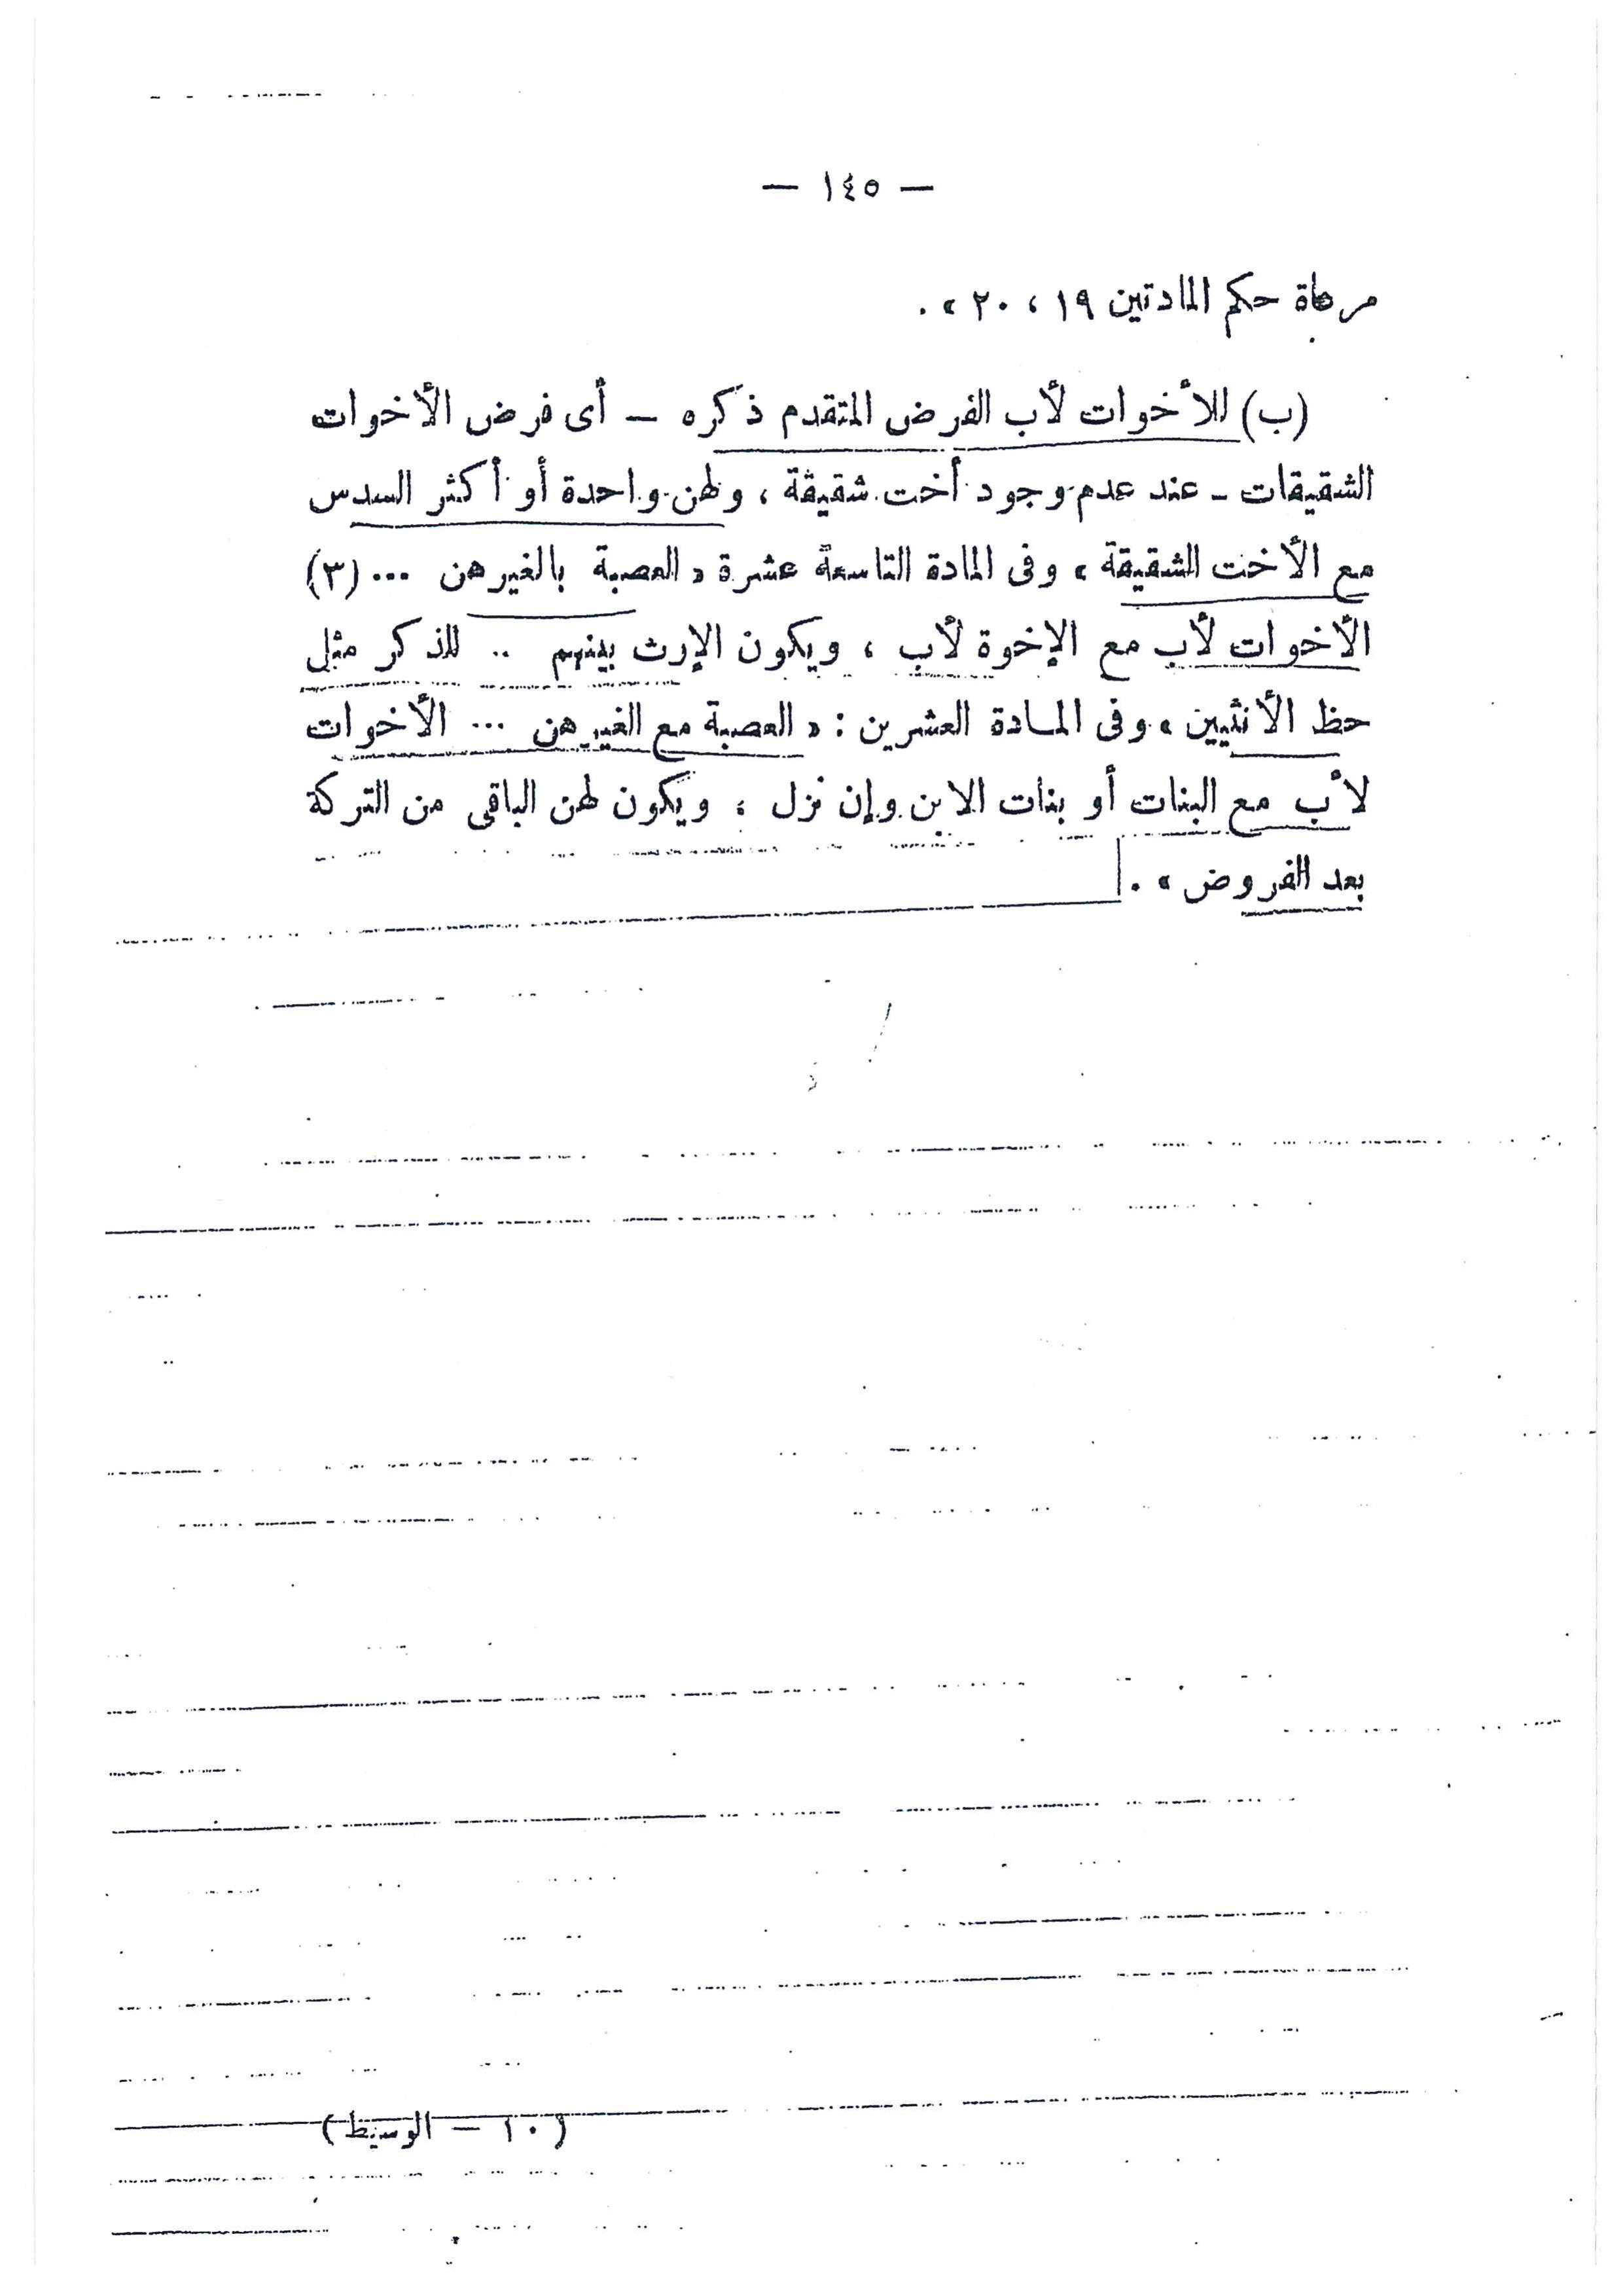 — ١٤٥ —
مرعاة حكم المادتين ١٩ ، ٢٠ » .
(ب) للأخوات لأب الفرض المتقدم ذكره — أى فرض الأخوات
الشقيقات - عند عدم وجود أخت شقيقة ، ولهن واحدة أو أكثر السدس
مع الأخت الشقيقة » وفى المادة التاسعة عشرة « العصبة بالغير هن ... (٣)
الأخوات لأب مع الإخوة لأب ، ويكون الإرث بينهم .. للذكر مثل
حظ الأنثيين » وفى المادة العشرين : « العصبة مع الغير هن ... الأخوات
لأب مع البنات أو بنات الابن وإن نزل ، ويكون لهن الباقى من التركة
بعد الفروض » .
(١٠ — الوسيط)